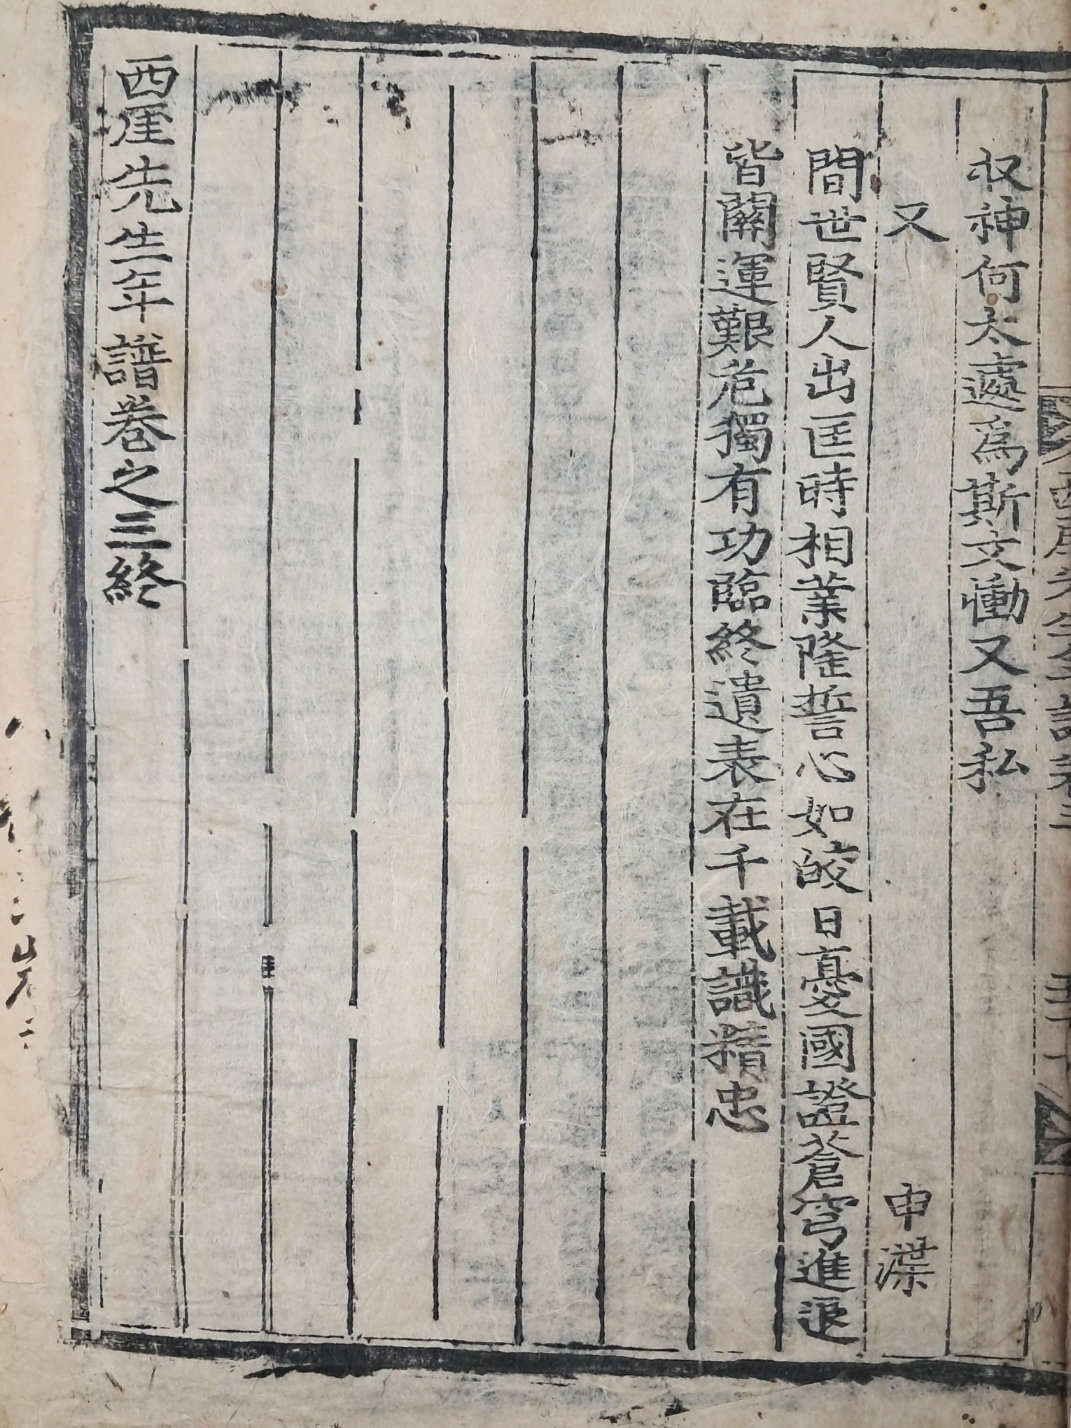 収神何太遽爲斯文慟又吾私
又 申渫
間世賢人出匡時相業隆誓心如皎日憂國證蒼穹進退
皆關運艱危獨有功臨終遺表在千載識精忠
西厓先生年譜卷之三終